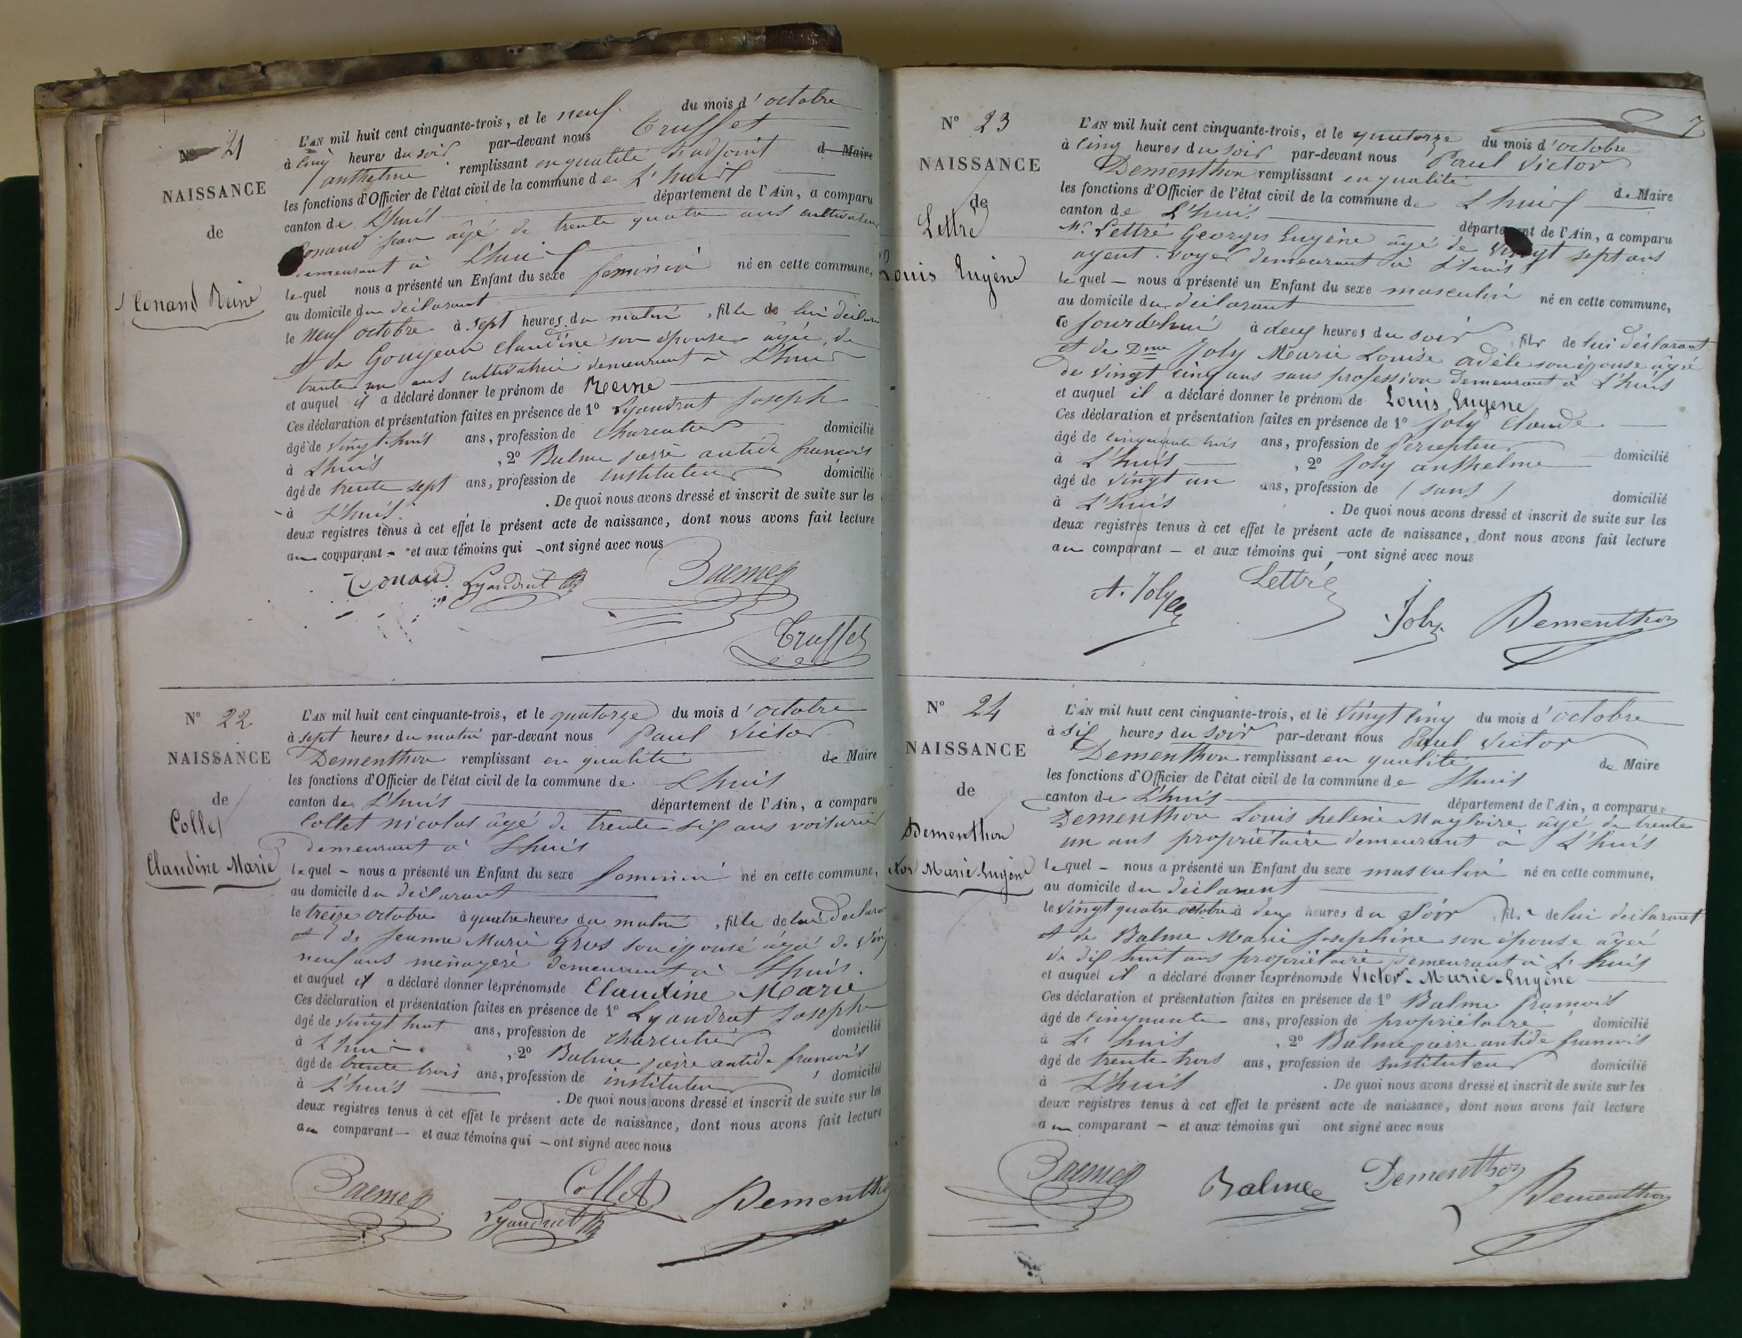 N° 21
NAISSANCE
de
Conand Reine
L'AN mil huit cent cinquante-trois, et le neuf du mois d'octobre
à cinq heures du soir par-devant nous Truffet
anthelme remplissant en qualité d'adjoint d Maire
les fonctions d'Officier de l'état civil de la commune de L'huis
canton de L'huis département de l'Ain, a comparu
Conand jean âgé de trente quatre ans cultivateur
demeurant à L'huis
lequel nous a présenté un Enfant du sexe féminin né en cette commune,
au domicile du déclarant
le neuf octobre à sept heures du matin, fille de lui déclarant
et de Goujeon Claudine son épouse âgée de
trente un ans cultivatrice demeurant à L'huis
et auquel il a déclaré donner le prénom de Reine
Ces déclaration et présentation faites en présence de 1° Lyaudrat Joseph
âgé de vingt-huit ans, profession de charcutier domicilié
à L'huis, 2° Balme pierre antide françois
âgé de trente sept ans, profession de instituteur domicilié
à L'huis. De quoi nous avons dressé et inscrit de suite sur les
deux registres tenus à cet effet le présent acte de naissance, dont nous avons fait lecture
au comparant - et aux témoins qui - ont signé avec nous
Conand Lyaudrat Balme
Truffet
N° 22
NAISSANCE
de
Collet
Claudine Marie
L'AN mil huit cent cinquante-trois, et le quatorze du mois d'octobre
à sept heures du matin par-devant nous Paul Victor
Dementhon remplissant en qualité de Maire
les fonctions d'Officier de l'état civil de la commune de L'huis
canton de L'huis département de l'Ain, a comparu
Collet nicolas âgé de trente six ans voiturier
demeurant à L'huis
lequel - nous a présenté un Enfant du sexe féminin né en cette commune,
au domicile du déclarant
le treize octobre à quatre heures du matin, fille de lui déclarant
et de Jeanne Marie Gros son épouse âgée de vingt
neuf ans ménagère demeurant à L'huis.
et auquel il a déclaré donner les prénoms de Claudine Marie
Ces déclaration et présentation faites en présence de 1° Lyaudrat Joseph
âgé de vingt huit ans, profession de charcutier domicilié
à L'huis, 2° Balme pierre antide françois
âgé de trente trois ans, profession de instituteur domicilié
à L'huis. De quoi nous avons dressé et inscrit de suite sur les
deux registres tenus à cet effet le présent acte de naissance, dont nous avons fait lecture
au comparant - et aux témoins qui - ont signé avec nous
Balme Collet Dementhon
Lyaudrat
7
N° 23
NAISSANCE
de
Lettré
Louis Eugène
L'AN mil huit cent cinquante-trois, et le quatorze du mois d'octobre
à cinq heures du soir par-devant nous Paul Victor
Dementhon remplissant en qualité de Maire
les fonctions d'Officier de l'état civil de la commune de L'huis
canton de L'huis département de l'Ain, a comparu
Mr Lettré Georges Eugène âgé de vingt sept ans
agent-voyer demeurant à L'huis
lequel - nous a présenté un Enfant du sexe masculin né en cette commune,
au domicile du déclarant
ce jourd'hui à deux heures du soir, fils de lui déclarant
et de Dme Joly Marie Louise Adèle son épouse âgée
de vingt cinq ans sans profession demeurant à L'huis
et auquel il a déclaré donner le prénom de Louis Eugène
Ces déclaration et présentation faites en présence de 1° Joly Claude
âgé de cinquante trois ans, profession de percepteur domicilié
à L'huis, 2° Joly anthelme
âgé de vingt un ans, profession de (sans) domicilié
à L'huis. De quoi nous avons dressé et inscrit de suite sur les
deux registres tenus à cet effet le présent acte de naissance, dont nous avons fait lecture
au comparant - et aux témoins qui - ont signé avec nous
A. Joly Lettré Joly Dementhon
N° 24
NAISSANCE
de
Dementhon
Victor Marie Eugène
L'AN mil huit cent cinquante-trois, et le vingt cinq du mois d'octobre
à six heures du soir par-devant nous Paul Victor
Dementhon remplissant en qualité de Maire
les fonctions d'Officier de l'état civil de la commune de L'huis
canton de L'huis département de l'Ain, a comparu
Dementhon Louis helène Magloire âgé de trente
un ans propriétaire demeurant à L'huis
lequel - nous a présenté un Enfant du sexe masculin né en cette commune,
au domicile du déclarant
le vingt quatre octobre à deux heures du soir, fils de lui déclarant
et de Balme Marie Josephine son épouse âgée
de dix huit ans propriétaire demeurant à L'huis
et auquel il a déclaré donner les prénoms de Victor-Marie-Eugène
Ces déclaration et présentation faites en présence de 1° Balme françois
âgé de cinquante ans, profession de propriétaire domicilié
à L'huis, 2° Balme pierre antide françois
âgé de trente trois ans, profession de instituteur domicilié
à L'huis. De quoi nous avons dressé et inscrit de suite sur les
deux registres tenus à cet effet le présent acte de naissance, dont nous avons fait lecture
au comparant - et aux témoins qui ont signé avec nous
Balme Balme Dementhon Dementhon